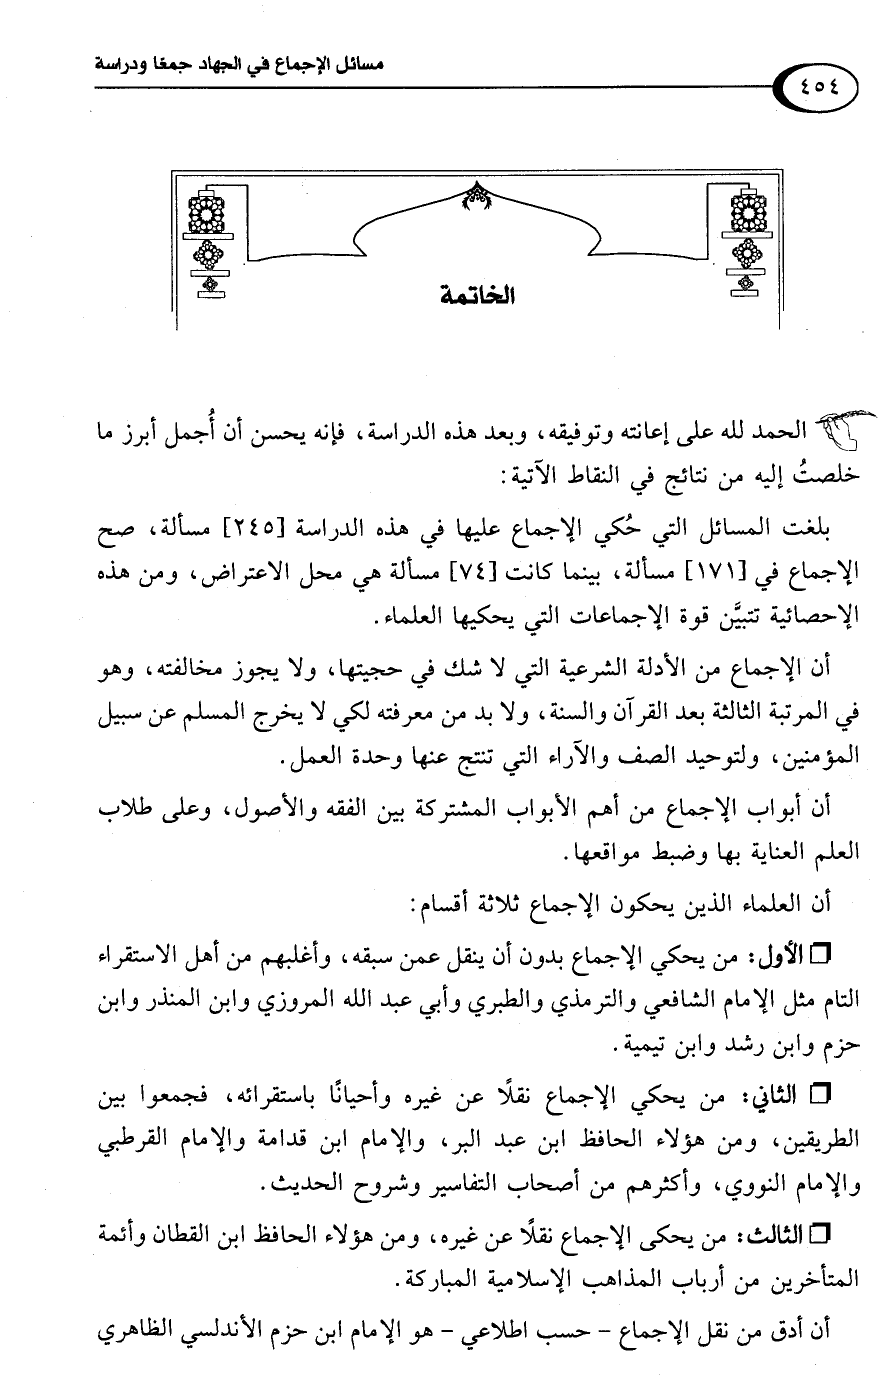 مسائل الإجماع في الجهاد جمعًا ودراسة
٤٥٤
الخاتمة
الحمد لله على إعانته وتوفيقه، وبعد هذه الدراسة، فإنه يحسن أن أُجمل أبرز ما
خلصتُ إليه من نتائج في النقاط الآتية:
بلغت المسائل التي حُكي الإجماع عليها في هذه الدراسة [٢٤٥] مسألة، صح
الإجماع في [١٧١] مسألة، بينما كانت [٧٤] مسألة هي محل الاعتراض، ومن هذه
الإحصائية تتبيَّن قوة الإجماعات التي يحكيها العلماء.
أن الإجماع من الأدلة الشرعية التي لا شك في حجيتها، ولا يجوز مخالفته، وهو
في المرتبة الثالثة بعد القرآن والسنة، ولا بد من معرفته لكي لا يخرج المسلم عن سبيل
المؤمنين، ولتوحيد الصف والآراء التي تنتج عنها وحدة العمل.
أن أبواب الإجماع من أهم الأبواب المشتركة بين الفقه والأصول، وعلى طلاب
العلم العناية بها وضبط مواقعها.
أن العلماء الذين يحكون الإجماع ثلاثة أقسام:
❒ الأول: من يحكي الإجماع بدون أن ينقل عمن سبقه، وأغلبهم من أهل الاستقراء
التام مثل الإمام الشافعي والترمذي والطبري وأبي عبد الله المروزي وابن المنذر وابن
حزم وابن رشد وابن تيمية.
❒ الثاني: من يحكي الإجماع نقلًا عن غيره وأحيانًا باستقرائه، فجمعوا بين
الطريقين، ومن هؤلاء الحافظ ابن عبد البر، والإمام ابن قدامة والإمام القرطبي
والإمام النووي، وأكثرهم من أصحاب التفاسير وشروح الحديث.
❒ الثالث: من يحكى الإجماع نقلًا عن غيره، ومن هؤلاء الحافظ ابن القطان وأئمة
المتأخرين من أرباب المذاهب الإسلامية المباركة.
أن أدق من نقل الإجماع – حسب اطلاعي – هو الإمام ابن حزم الأندلسي الظاهري